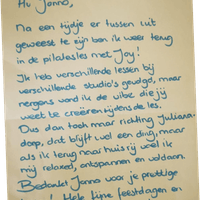 Hi Janna,
Na een tijdje er tussen uit
geweest te zijn ben ik weer terug
in de pilatesles met Joy!
Ik heb verschillende lessen bij
verschillende studio's gevolgd, maar
nergens word ik de vibe die jij
weet te creëren tijdens de les.
Dus dan toch maar richting Juliana-
dorp, dat blijft wel een ding, maar
als ik terug naar huis rij voel ik
mij relaxed, ontspannen en voldaan.
Bedankt Janna voor je prettige
Hele fijne feestdagen en